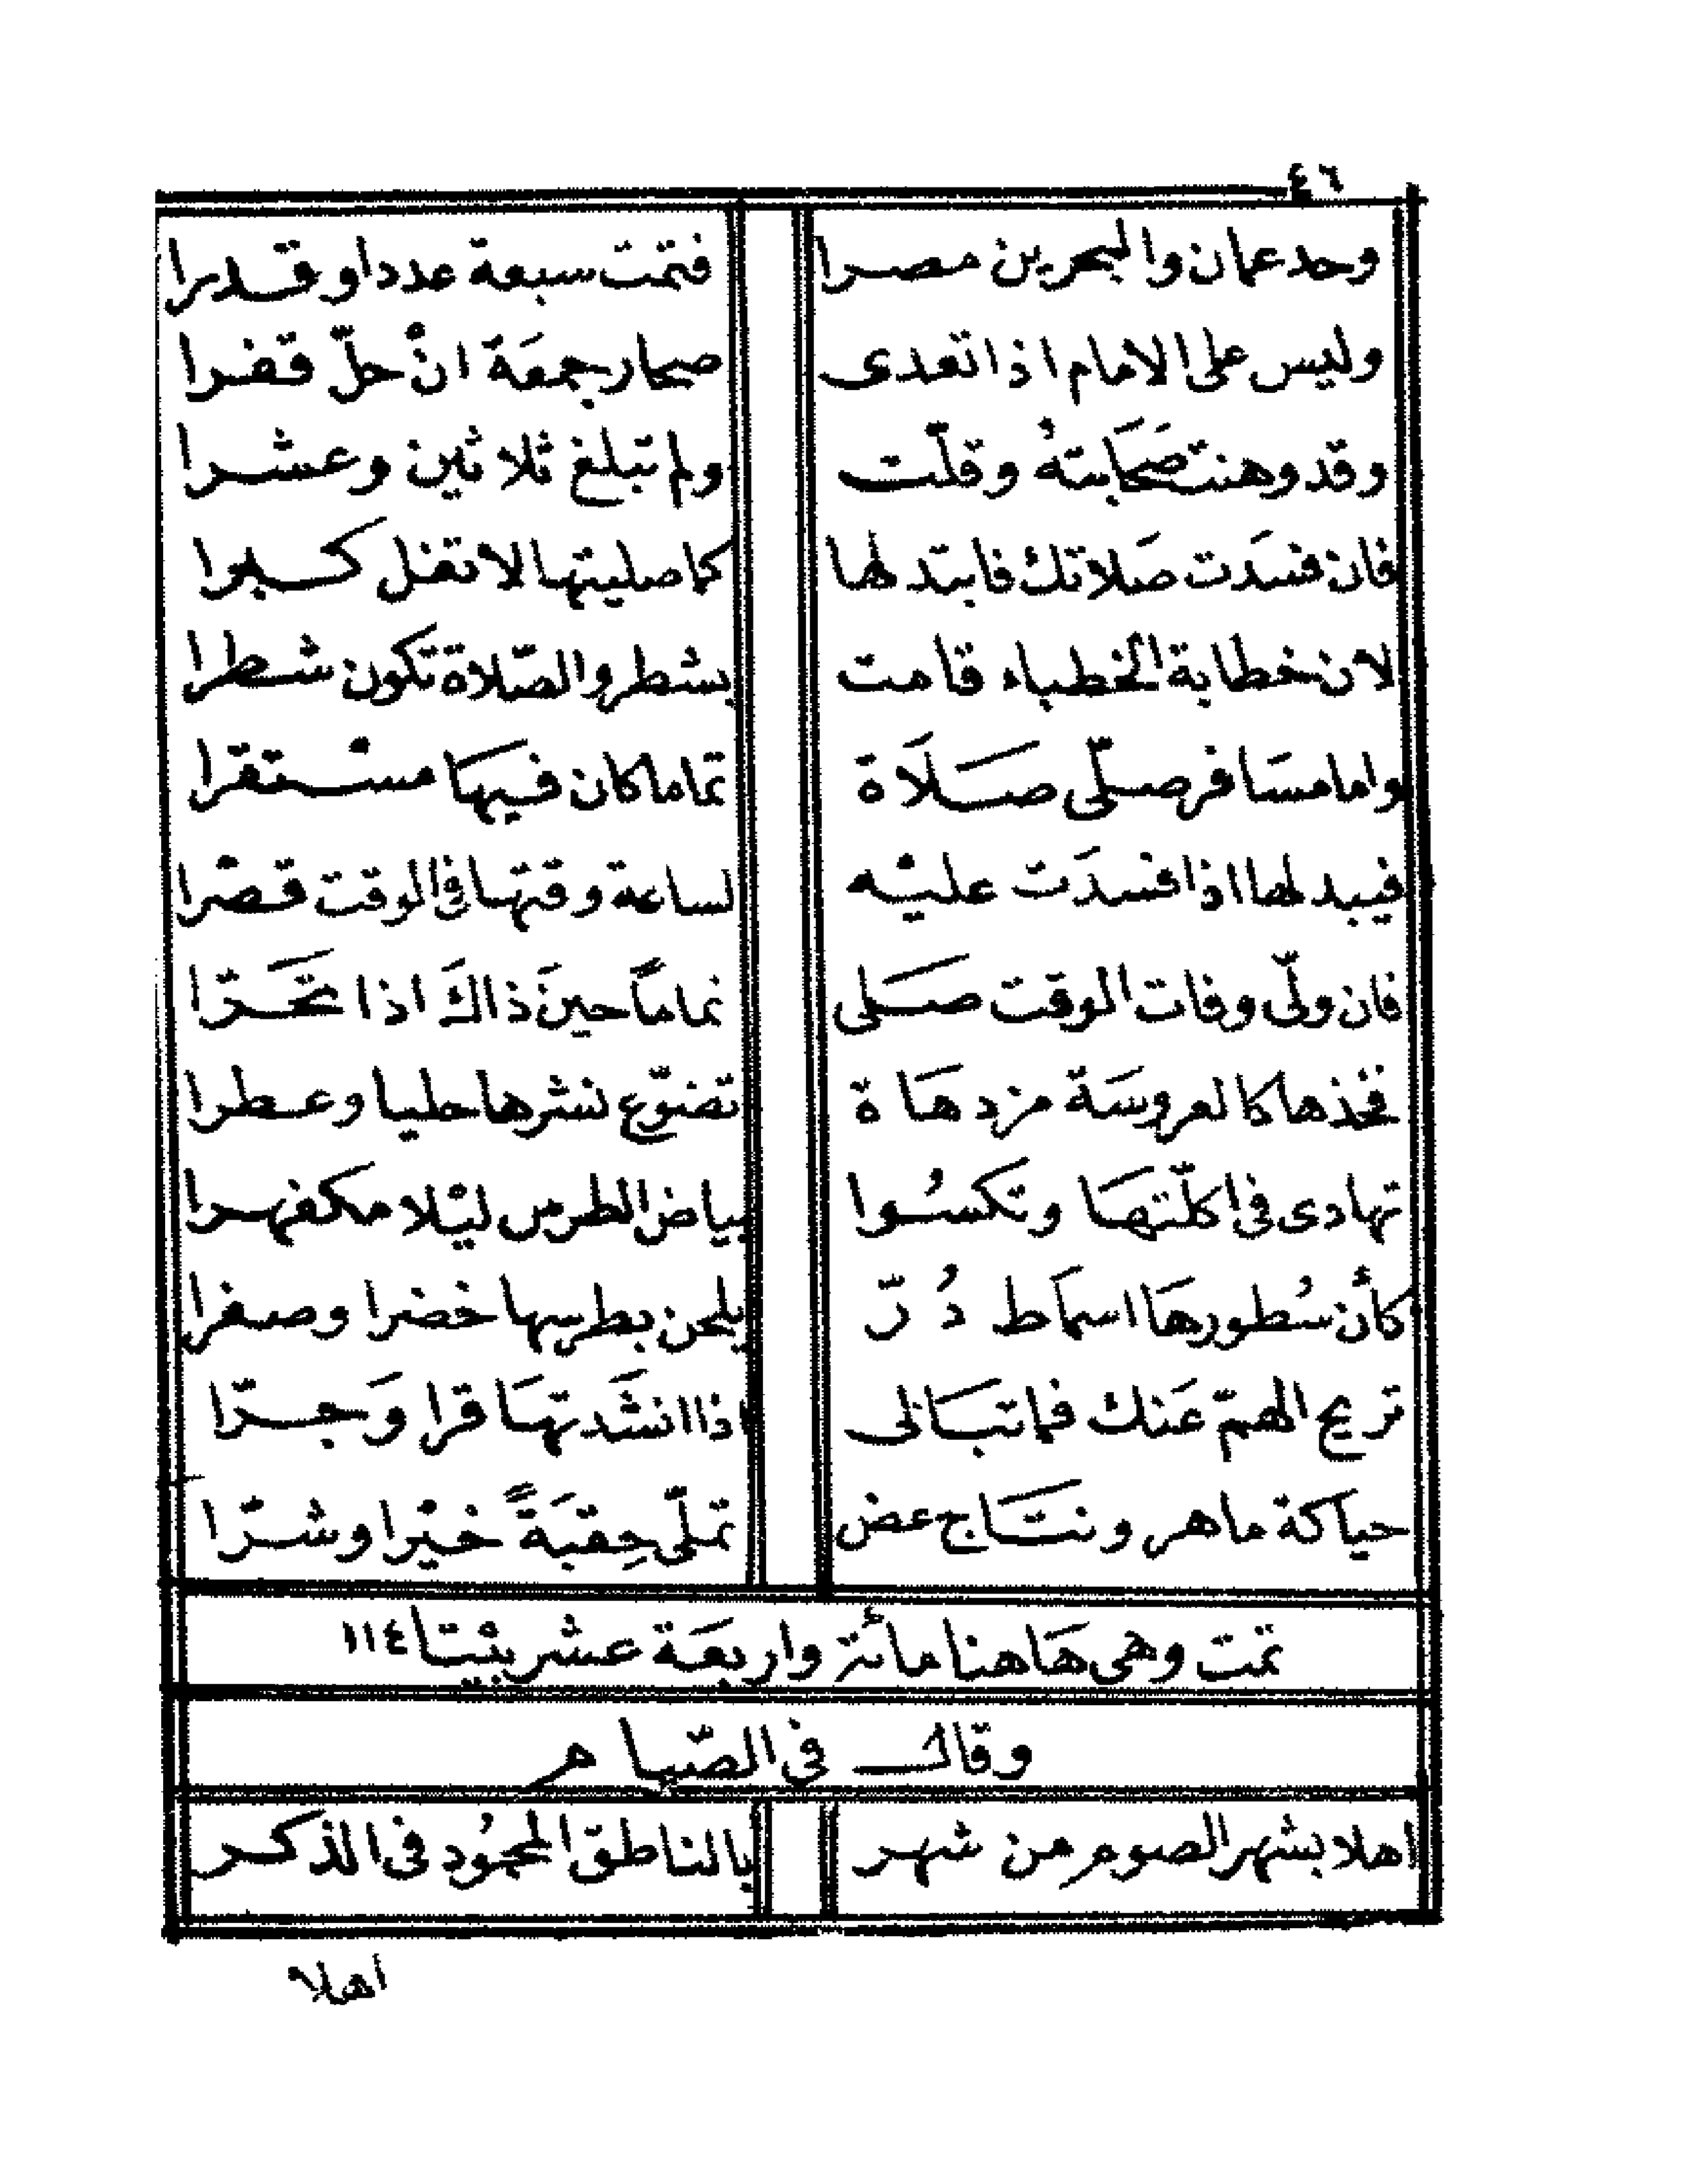 ٤٦
وحد عمان والبحرين مصرا فتمت سبعة عددا وقدرا
وليس على الامام اذا تعدى صحار جمعَة انْ حلّ قفرا
وقد وهنت صَحَابته وقلّت ولم تبلغ ثلاثين وعشرا
فان فسَدَت صَلاتك فابتدلها كما صليتها لا تقل كبرا
لان خطابة الخطباء قامت بشطر والصّلاة تكون شطرا
واما مسَافر صلّى صَلَاة تماما كان فيهَا مسْتقرّا
فيبدلها اذا فسدَت عليْه لساعة وقتها في الوقت قصْرا
فان ولّى وفات الوقت صَلى تماماً حينَ ذاكَ اذا تحَرّا
فخذها كالعروسَة مزدهَاة تضوّع نشرها حليا وعطرا
تهادى في اكلّتهَا وتكسُوا بياض الطرس ليْلا مكفهرا
كأن سُطورهَا اسمَاط دُرّ يلحن بطرسها خضرا وصفرا
تريح الهمّ عَنك فما تبَالى اذا انشَدتهَا قرا وَحرّا
حياكة ماهر ونتَاج عض تملّى حِقبَةً خيْرا وشرّا
تمت وهى هَاهنا مائة واربعَة عشر بيْتا ١١٤
وقال في الصّيام
اهلا بشهر الصوم من شهر بالناطق المحمُود في الذكر
اهلا